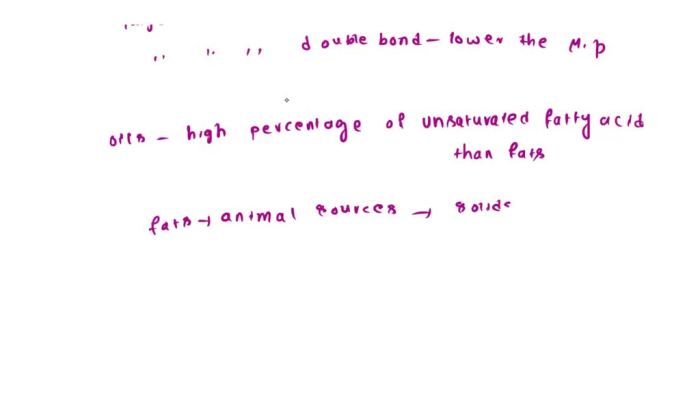 ,, ,, ,, double bond – lower the M.p
oils – high percentage of unsaturated fatty acid
than fats
fats → animal sources → solids